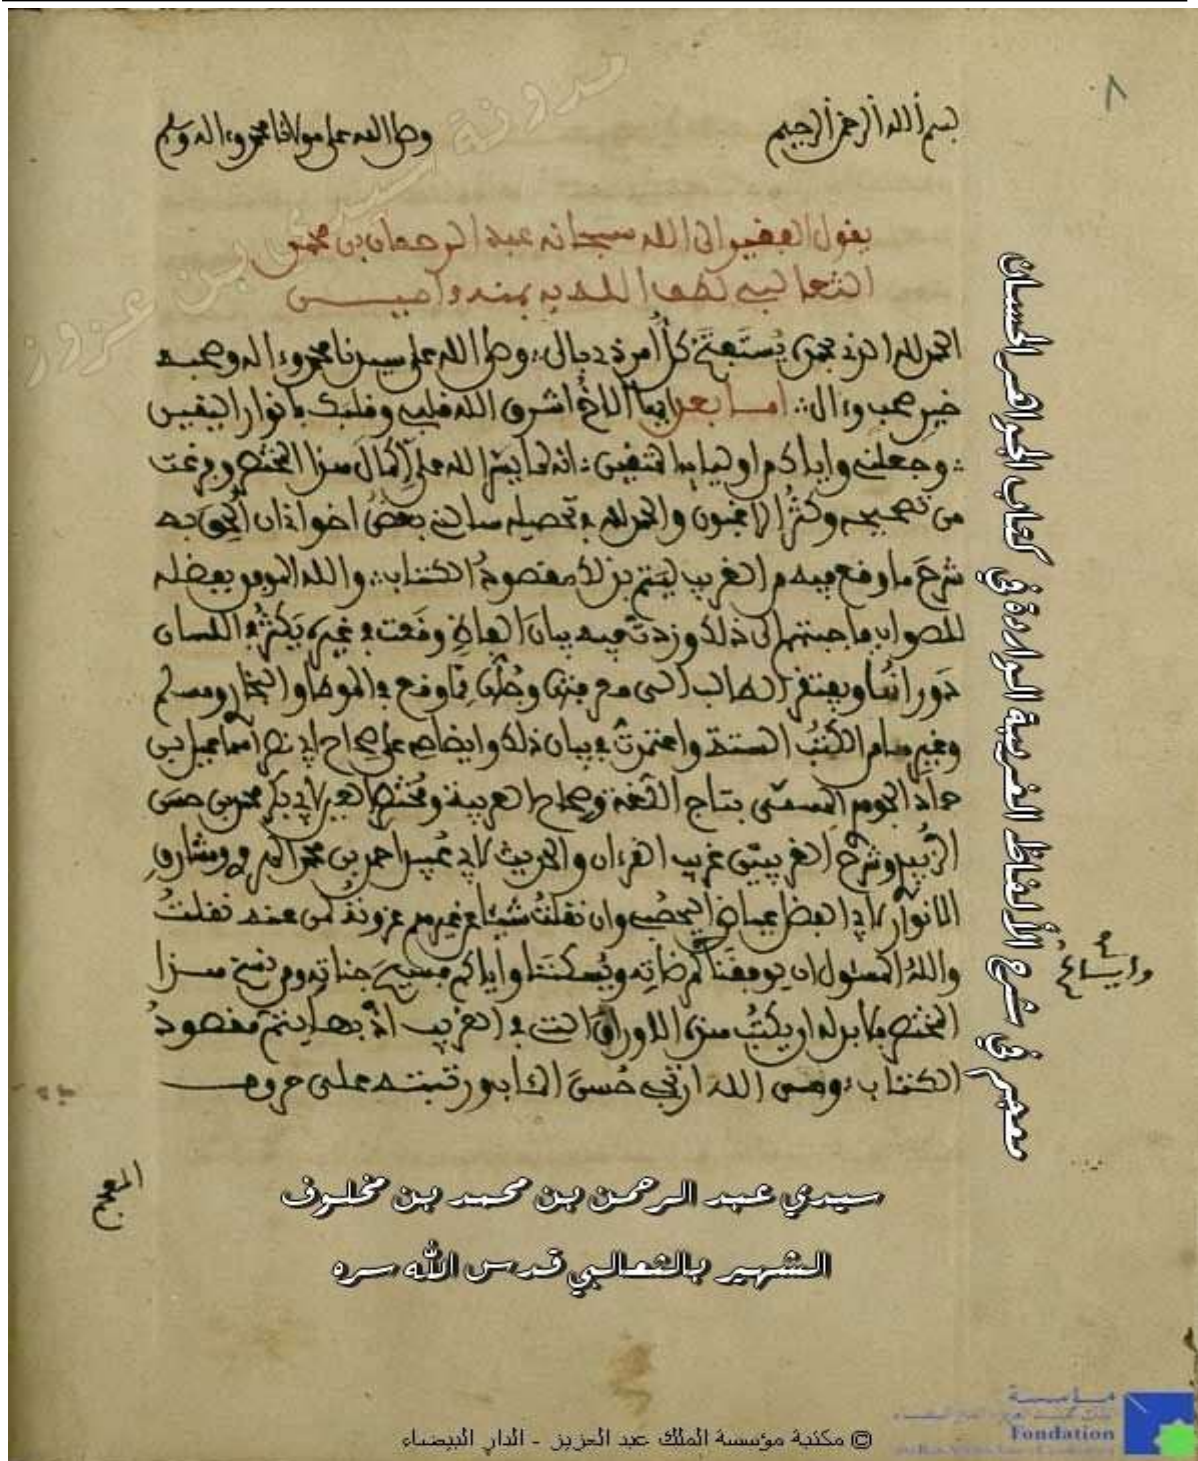 ٨
بسم الله الرحمن الرحيم وصلى الله على مولانا محمد وءاله وسلم
يقول الفقير الى الله سبحانه عبد الرحمان بن محمد
الثعالبي لطف الله به بمنه ءاميــــن
الحمد لله الذي بحمده يُستَفتَح كلُّ أمر ذي بال وصلى الله على سيدنا محمد وءاله وصحبه
خير صحب وءال امــا بعد ايها الاخ اشرق الله قلبي وقلبك بانوار اليقين
وجعلني واياكم من اوليايه المتقين انه لما يسر الله علي اكمال هذا المختصر وفرغت
من تصحيحه وكثر الراغبون والحمد لله في تحصيله سالني بعض اخواني ان الحق به
شرح ما وقع فيه من الغريب ليتم بذلك مقصود الكتاب والله الموفق بفضله
للصواب فاجبتهم الى ذلك وزدت فيه بيان الفاظ وقعت في غيره يكثر في اللسان
دورانها ويفتقر الطالب الى معرفتها وجلها مما وقع في الموطا والبخاري ومسلم
وغيرها من الكتب الستة واعتمدت في بيان ذلك وايضاحه على صحاح ابي نصر اسماعيل بن
حماد الجوهري المسمى بتاج اللغة وصحاح العربية ومختصر العين لابي بكر محمد بن حسن
الزبيدي وشرح الغريبين غريب القرءان والحديث لابي عبيد احمد بن محمد الهروي ومشارق
الانوار لابي الفضل عياض اليحصبي وان نقلت شيئا عن غيرهم عزوته لمن عنه نقلت
والله المسئول ان يوفقنا لمرضاته ويسكننا واياكم فسيح جناته ومن نسخ هــذا
المختصر فلا بد له ان يكتب هذه الاوراق التي في الغريب اذ بها يتم مقصود
الكتاب ومن الله ارتجي حسن المئاب ورتبته على حروف
المعجم
معجم في شرح الألفاظ الغريبة الواردة في كتاب الجواهر الحسان
سيدي عبد الرحمن بن محمد بن مخلوف
الشهير بالثعالبي قدس الله سره
مدونة سيدي بن عزوز
© مكتبة مؤسسة الملك عبد العزيز - الدار البيضاء
مؤسسة
Fondation